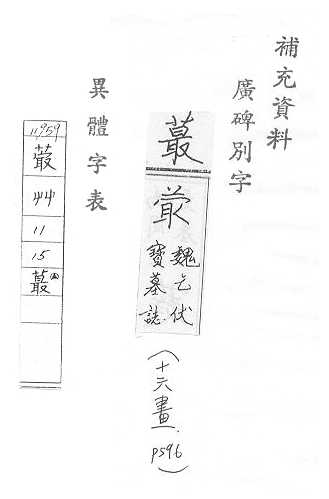 補充資料
廣碑別字
蕞
魏乞伏
寶墓誌
(十六畫.
p596)
異體字表
11959
蕞
艸
11
15